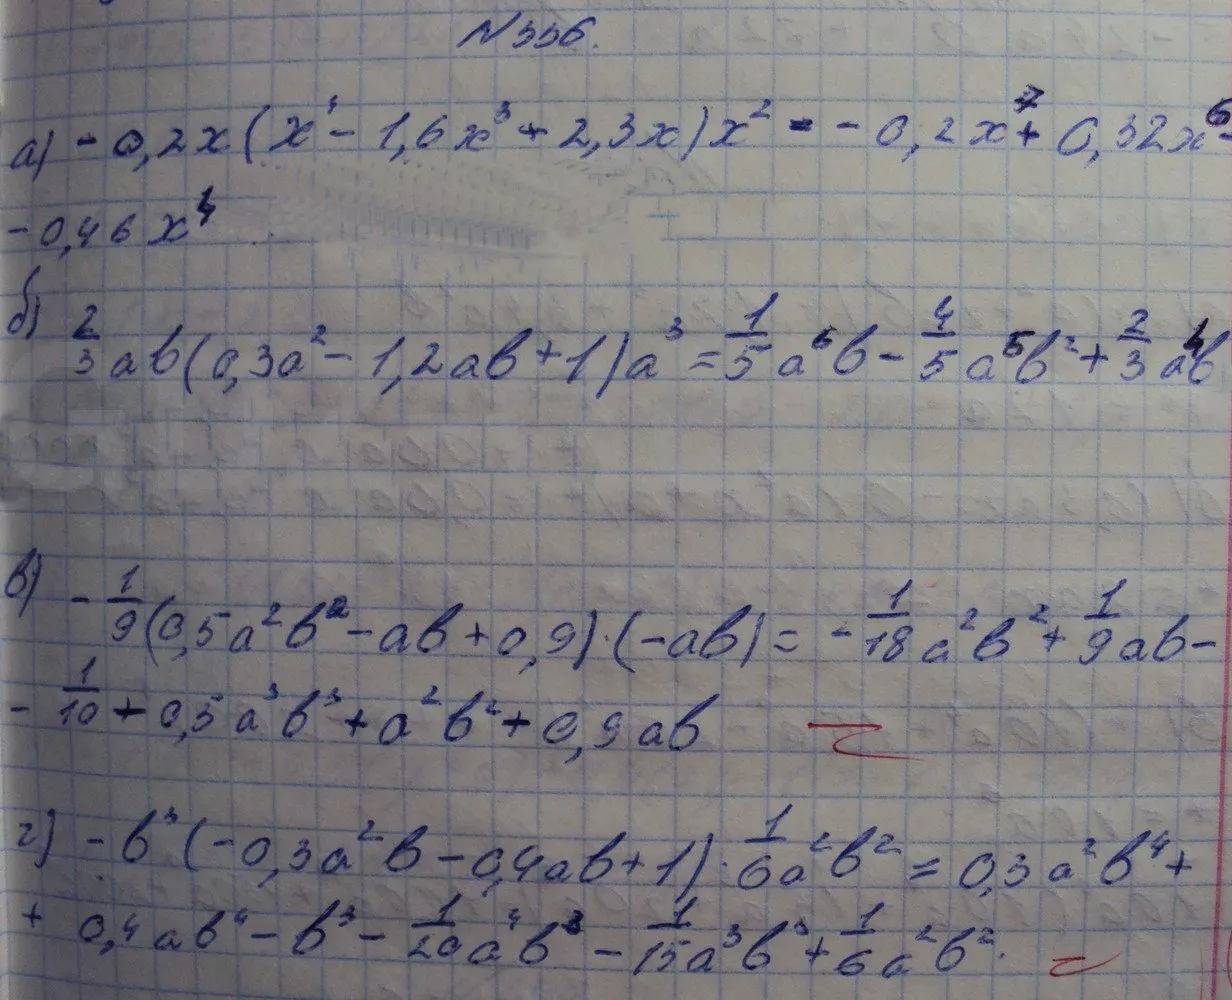 № 556.
а) - 0,2x(x⁴ - 1,6x³ + 2,3x)x² = - 0,2x⁷ + 0,32x⁶ -
- 0,46x⁴
б) 2/3 ab(0,3a² - 1,2ab + 1)a³ = 1/5 a⁶b - 4/5 a⁵b² + 2/3 a⁴b
в) - 1/9 (0,5a²b² - ab + 0,9)·(-ab) = - 1/18 a²b² + 1/9 ab -
- 1/10 + 0,5a³b³ + a²b² + 0,9ab
г) - b³(-0,3a²b - 0,4ab + 1)· 1/6 a²b² = 0,3a²b⁴ +
+ 0,4ab⁴ - b³ - 1/20 a⁴b³ - 1/15 a³b³ + 1/6 a²b².